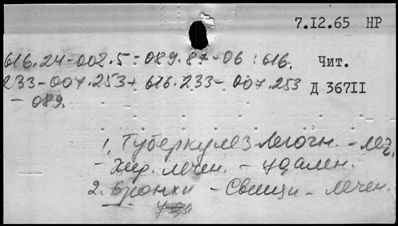 7.12.65 НР
616.24-002.5-089.87-06:616. Чит.
233-007.253+616.233-007.253 Д 367II
-089.
1. Туберкулез легочн. - леч.
- Хир. лечен. - удален.
2. Бронхи - Свищи - лечен.